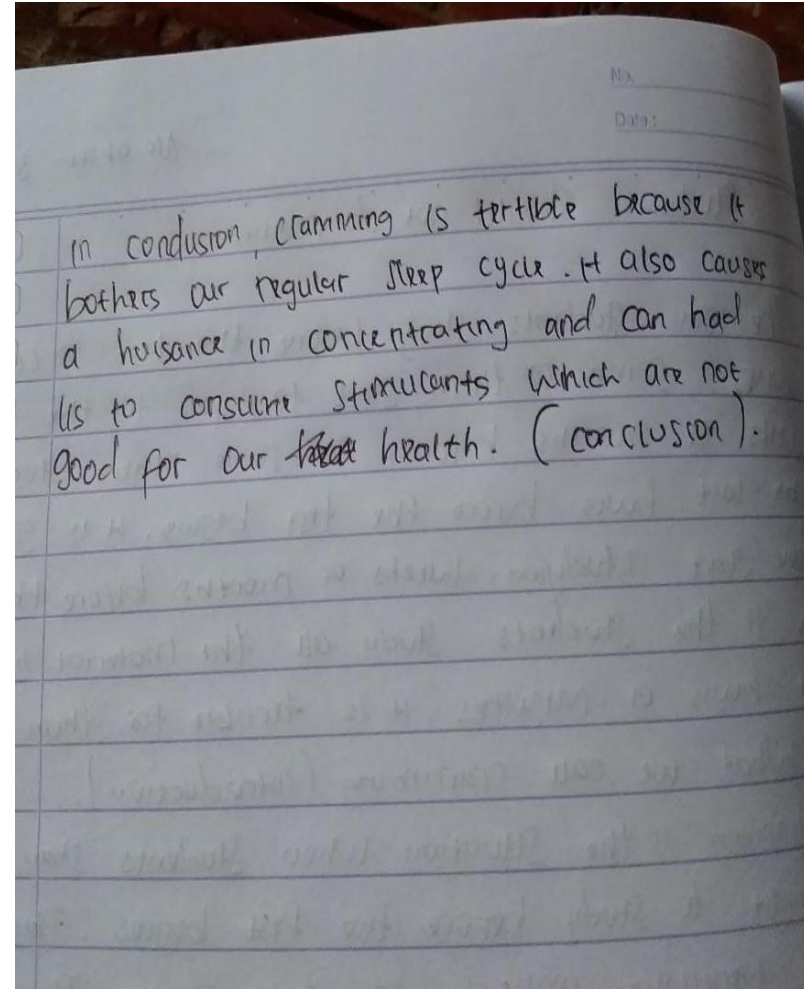 No.
Date:
in conclusion, cramming is terrible because it
bothers our regular sleep cycle. It also causes
a nuisance in concentrating and can had
us to consume stimulants which are not
good for our health. (conclusion).